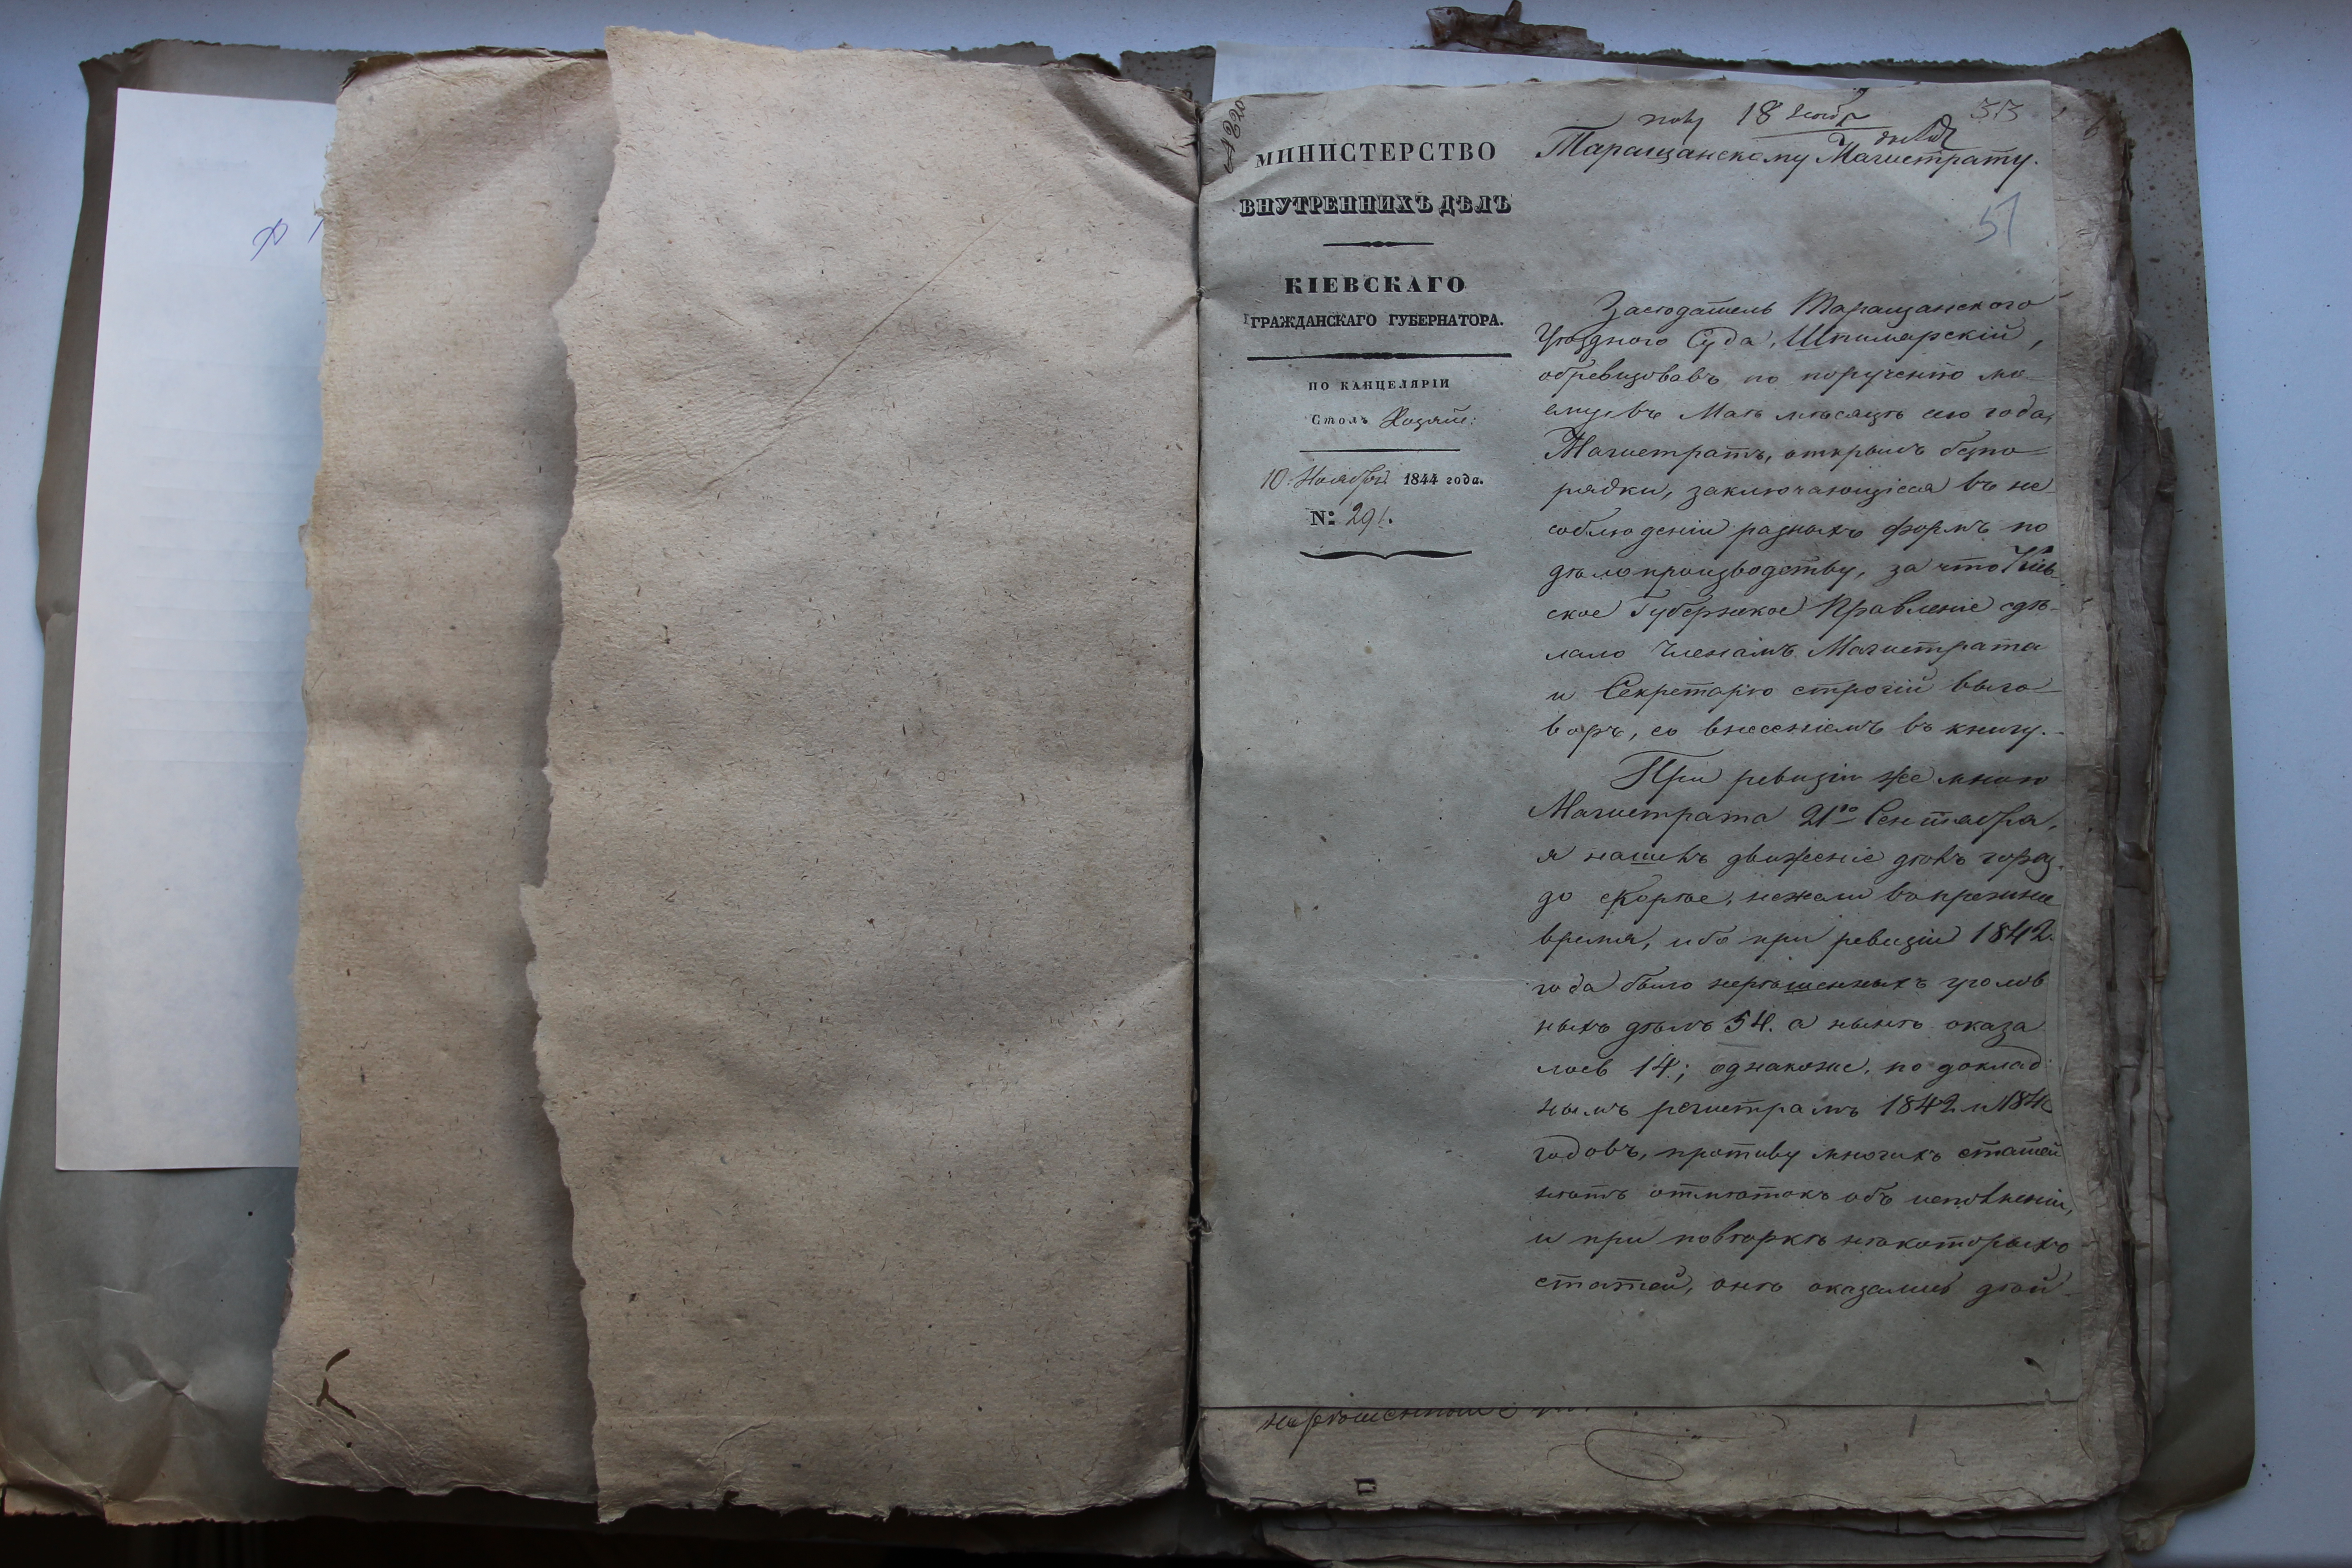 № 220
МИНИСТЕРСТВО
ВНУТРЕННИХЪ ДѢЛЪ
КІЕВСКАГО
ГРАЖДАНСКАГО ГУБЕРНАТОРА.
ПО КАНЦЕЛЯРІИ
Столъ Хозяй:
10. Ноября 1844 года.
№: 291.
18 Ноября
33
Таращанскому Магистрату.
51
Засѣдатель Таращанского
Уѣзднаго Суда,
обревизовавъ по порученію мо-
ему въ Маѣ мѣсяцѣ сего года,
Магистратъ, открылъ безпо-
рядки, заключающіеся въ не-
соблюденіи разныхъ формъ по
дѣлопроизводству, за что Кіев-
ское Губернское Правленіе сдѣ-
лало Членамъ Магистрата
и Секретарю строгій выго-
воръ, со внесеніемъ въ книгу.-
При ревизіи же мною
Магистрата 21го Сентября,
я нашелъ движеніе дѣлъ гораз-
до скорѣе, нежели въ прежнее
время, ибо при ревизіи 1842.
года было нерѣшенныхъ уголов
ныхъ дѣлъ 54. а нынѣ оказа
лось 14; однакоже, по доклад
нымъ регистрамъ 1842 и 184
годовъ, противу многихъ статей
нѣтъ отмѣтокъ объ исполненіи,
и при повѣркѣ нѣкоторыхъ
статей, онѣ оказались дѣй-